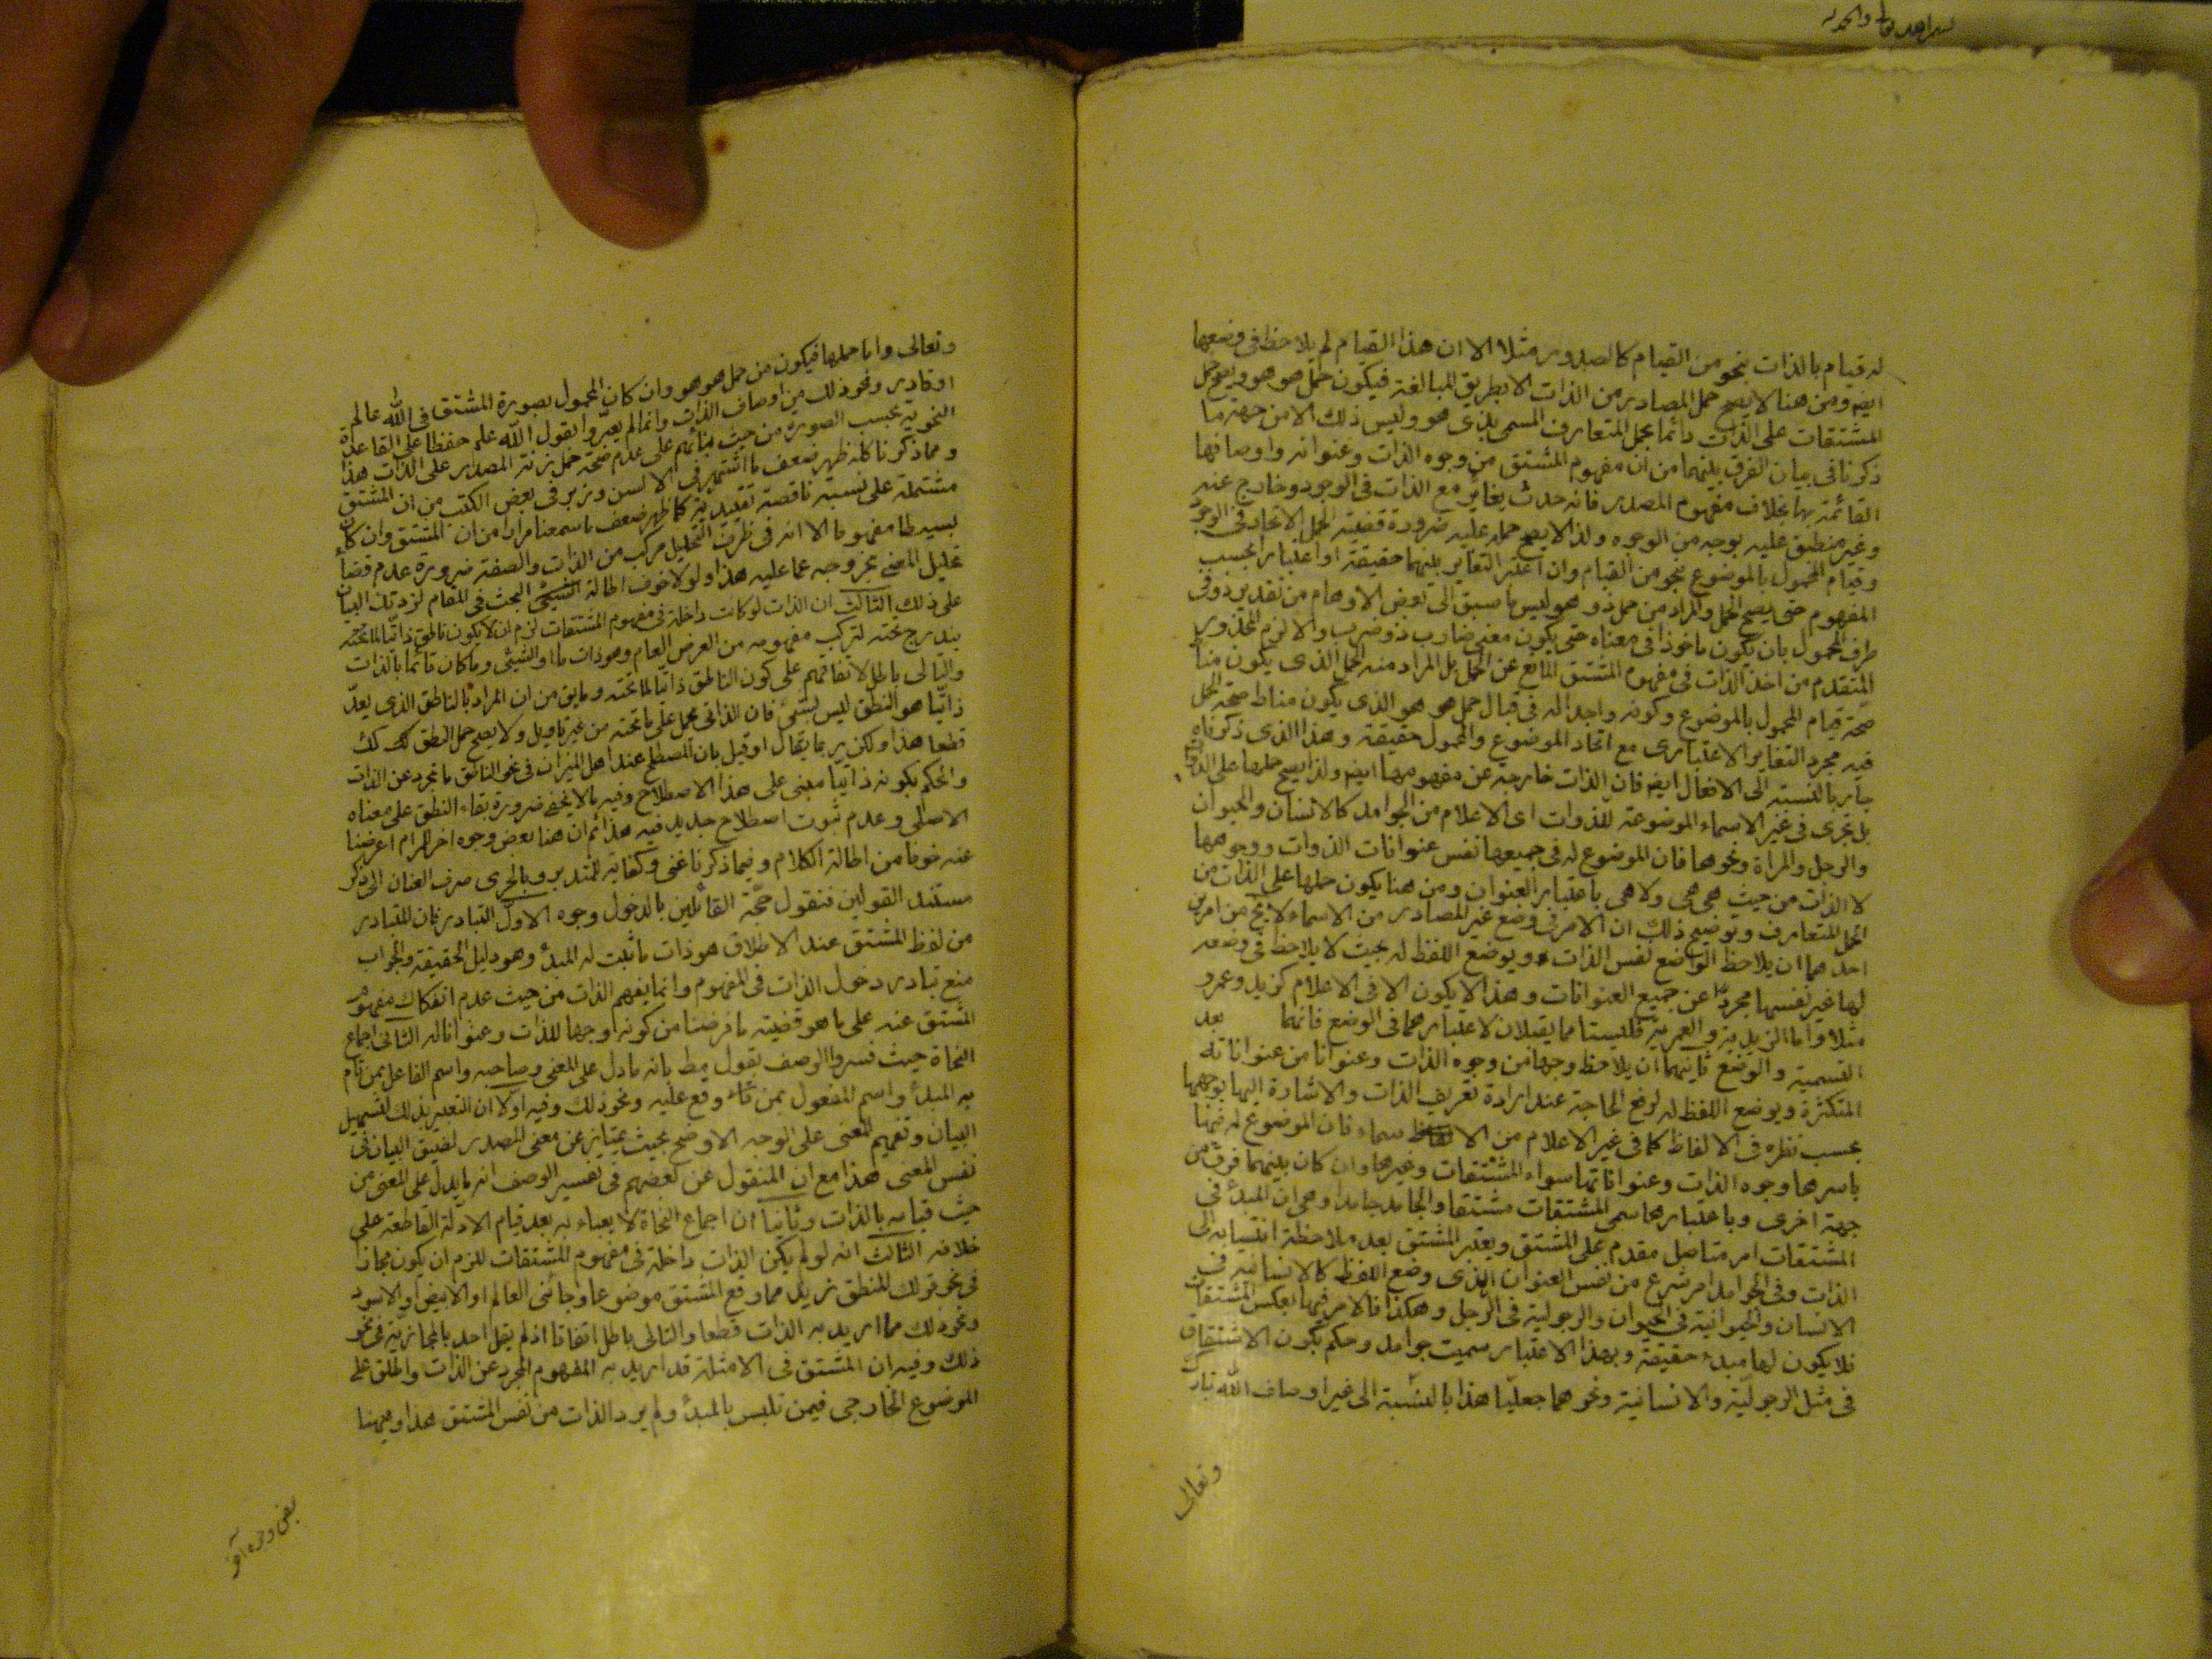 له قيام بالذات بنحو من القيام كالصدور مثلا الا ان هذا القيام لم يلاحظ فى وضعها
ايضا ومن هنا لا يصح حمل المصادر من الذات الا بطريق المبالغة فيكون حمل هو هو ويصح حمل
المشتقات على الذات دائما بحمل المتعارف المسمى بذى هو وليس ذلك الا من جهة ما
ذكرنا فى بيان الفرق بينهما من ان مفهوم المشتق من وجوه الذات وعنوانه واوصافها
القائمة بها بخلاف مفهوم المصدر فانه حدث يغاير مع الذات فى الوجود وخارج عنه
وغير منطبق عليه بوجه من الوجوه ولذا لا يصح حمله عليه ضرورة قضية الحمل الاتحاد فى الوجود
وقيام المحمول بالموضوع بنحو من القيام وان اعتبر التغاير بينهما حقيقة او اعتبارا بحسب
المفهوم حتى يصح الحمل والمراد من حمل ذو هو ليس ما سبق الى بعض الاوهام من تقدير ذو فى
طرف المحمول بان يكون ماخوذا فى معناه حتى يكون معنى ضارب ذو ضرب والا لزم المحذور
المتقدم من اخذ الذات فى مفهوم المشتق المانع عن الحمل بل المراد منه الحمل الذى يكون مناط
صحة قيام المحمول بالموضوع وكونه واجدا له فى قبال حمل هو هو الذى يكون مناط صحة الحمل
فيه مجرد التغاير الاعتبارى مع اتحاد الموضوع والمحمول حقيقة وهذا الذى ذكرناه
جار بالنسبة الى الافعال ايضا فان الذات خارجة عن مفهومها ايضا ولذا يصح حملها على الذات
بل تجرى فى غير الاسماء الموضوعة للذوات اى الاعلام من الجوامد كالانسان والحيوان
والرجل والمراة ونحوها فان الموضوع له فى جميعها نفس عنوانات الذوات ووجوهها
لا الذات من حيث هى هى ولا هى باعتبار العنوان ومن هنا يكون حملها على الذات من
الحمل المتعارف وتوضيح ذلك ان الامر فى وضع غير المصادر من الاسماء لا يخ من امرين
احدهما ان يلاحظ الواضع نفس الذات ويوضع اللفظ له بحيث لا يلاحظ فى وضعه
لها غير نفسها مجردا عن جميع العنوانات وهذا لا يكون الا فى الاعلام كزيد وعمرو
مثلا واما الزيدية والعمرية فليستا مما يقبلان لاعتبارهما فى الوضع فانهما بعد
التسمية والوضع ثانيهما ان يلاحظ وجها من وجوه الذات وعنوانا من عنواناته
المتكثرة ويوضع اللفظ له لرفع الحاجة عند ارادة تعريف الذات والاشارة اليها بوجهها
بحسب نظره فى الالفاظ كما فى غير الاعلام من الاسماء فان الموضوع له فيها
باسرها وجوه الذات وعنواناتها سواء المشتقات وغيرها وان كان بينهما فرق من
جهة اخرى وباعتبارها سمى المشتقات مشتقا والجامد جامدا وهى ان المبدأ فى
المشتقات امر متاصل مقدم على المشتق ويعتبر المشتق بعد ملاحظة انتسابه الى
الذات وفى الجوامد امر منتزع من نفس العنوان الذى وضع اللفظ كالانسانية فى
الانسان والحيوانية فى الحيوان والرجولية فى الرجل وهكذا فالامر فيها بعكس المشتقات
فلا يكون لها مبدء حقيقة وبهذا الاعتبار سميت جوامد وحكم بكون الاشتقاق
فى مثل الرجولية والانسانية ونحوهما جعليا هذا بالنسبة الى غير اوصاف الله تبارك
وتعالى
وتعالى واما حملها فيكون من حمل هو هو وان كان المحمول بصورة المشتق فى الله عالم
او قادر ونحو ذلك من اوصاف الذات وانما لم يعبروا بقول الله علم حفظا على القاعدة
النحوية بحسب الصورة من حيث بنائهم على عدم صحة حمل بزنة المصدر على الذات هذا
ومما ذكرنا كله ظهر ضعف ما اشتهر فى الالسن وزبر فى بعض الكتب من ان المشتق
مشتملة على نسبة ناقصة تقييدية كما ظهر ضعف ما سمعنا مرارا من ان المشتق وان كان
بسيطا مفهوما الا انه فى ظرف التحليل مركب من الذات والصفة ضرورة عدم قضاء
تحليل المعنى بخروجه عما عليه هذا ولولا خوف اطالة البحث فى المقام لزدتك البيان
على ذلك الثالث ان الذات لو كانت داخلة فى مفهوم المشتقات لزم ان لا يكون ناطق ذاتيا لما تحته
يندرج تحته لتركب مفهومه من العرض العام وهو ذات ما او الشئ وما كان قائما بالذات
والتالى باطل لاتفاقهم على كون الناطق ذاتيا لما تحته وما يق من ان المراد بالناطق الذى يعد
ذاتيا هو النطق ليس بشئ فان الذاتى يحمل على ما تحته من غير تاويل ولا يصح حمل النطق كك
قطعا هذا ولكن ربما يقال او قيل بان المصطلح عند اهل الميزان فى نحو الناطق ما تجرد عن الذات
والحكم بكونه ذاتيا مبنى على هذا الاصطلاح وفيه ما لا يخفى ضرورة بقاء النطق على معناه
الاصلى وعدم ثبوت اصطلاح جديد فيه هذا ثم ان هنا بعض وجوه اخر للمرام اعرضنا
عنه خوفا من اطالة الكلام وفيما ذكرنا غنى وكفاية للمتدبر وبالحرى صرف العنان الى ذكر
مستند القولين فنقول حجة القائلين بالدخول وجوه الاول التبادر فان المتبادر
من لفظ المشتق عند الاطلاق هو ذات ما ثبت له المبدأ وهو دليل الحقيقة والجواب
منع تبادر دخول الذات فى المفهوم وانما يفهم الذات من حيث عدم انفكاك مفهوم
المشتق عنه على ما هو قضية ما فرضنا من كونه وجها للذات وعنوانا له الثانى اجماع
النحاة حيث فسروا الوصف بقول مط بانه ما دل على المعنى وصاحبه واسم الفاعل بمن قام
به المبدأ واسم المفعول بمن وقع عليه ونحو ذلك وفيه اولا ان التعبير بذلك لتسهيل
البيان وتفهيم المعنى على الوجه الاوضح بحيث يمتاز عن معنى المصدر لضيق البيان فى
نفس المعنى هذا مع ان المنقول عن بعضهم فى تفسير الوصف انه ما يدل على المعنى من
حيث قيامه بالذات وثانيا ان اجماع النحاة لا يعباء به بعد قيام الادلة القاطعة على
خلافه الثالث انه لو لم يكن الذات داخلة فى مفهوم المشتقات للزم ان يكون مجازا
فى نحو قولك المنطق زيد مما وقع المشتق موضوعا وجائنى العالم او الابيض او الاسود
ونحو ذلك مما اريد به الذات قطعا والتالى باطل اتفاقا اذ لم يقل احد بالمجازية فى نحو
ذلك وفيه ان المشتق فى الامثلة قد اريد به المفهوم المجرد عن الذات واطلق على
الموضوع الخارجى فيمن تلبس بالمبدأ ولم يرد الذات من نفس المشتق هذا وههنا
بعض وجوه اخر